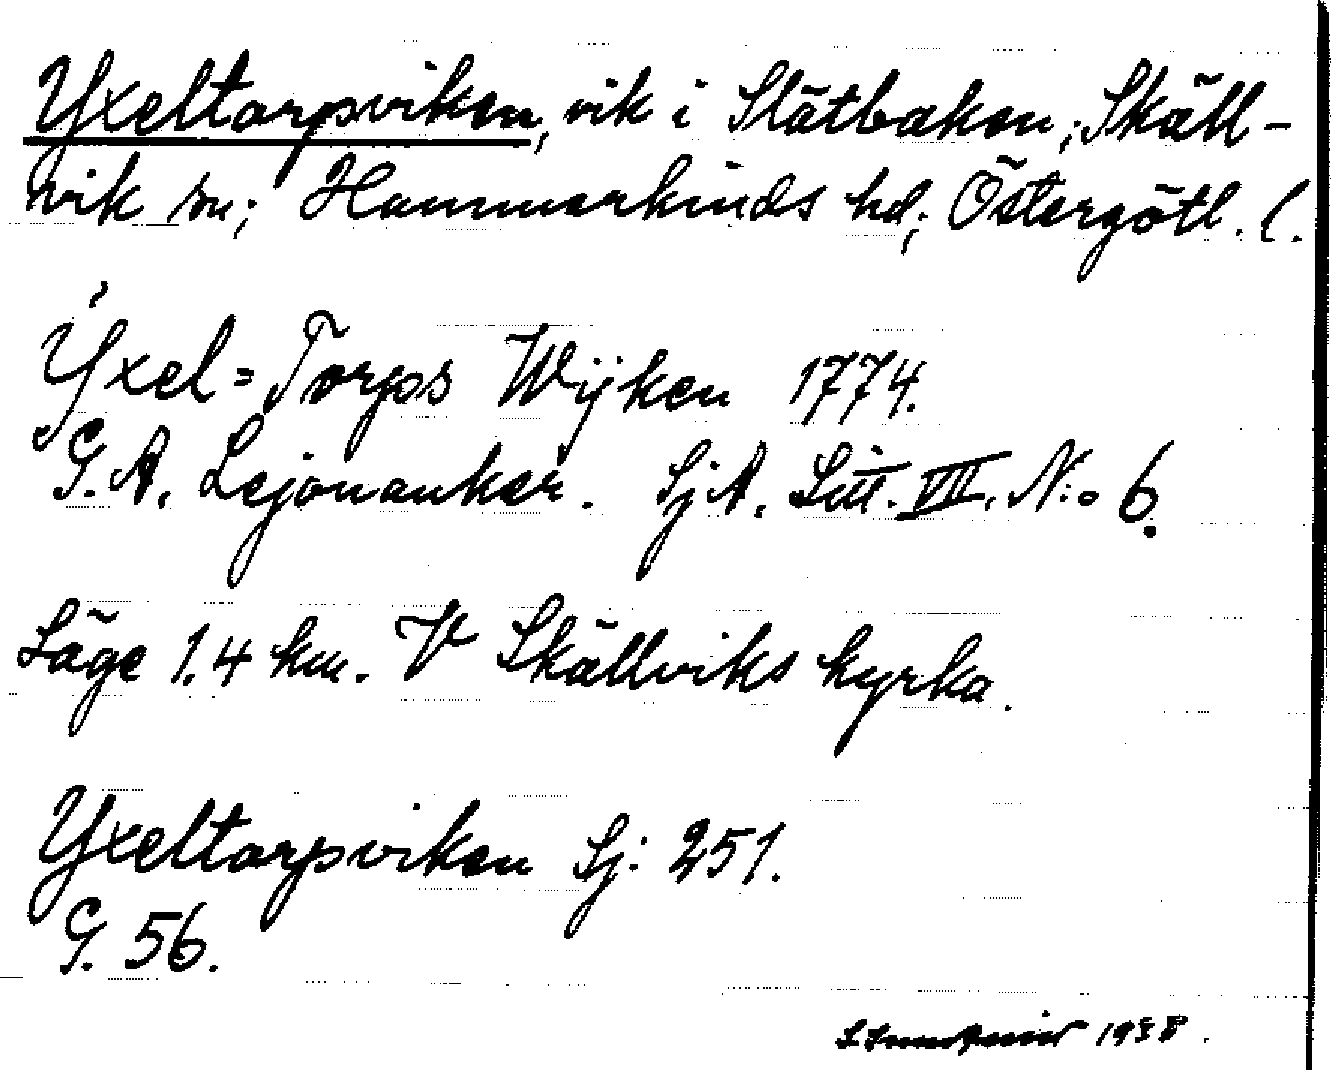 Yxeltorpsviken, vik i Slätbaken; Skäll-
vik sn; Hammarkinds hd; Östergötl. l.
Yxel=Torps Wijken 1774.
G. A. Lejonanker. SjA. Litt. VII. N:o 6.
Läge 1.4 km. V Skällviks kyrka.
Yxeltorpsviken Sj: 251.
G. 56.
1938.